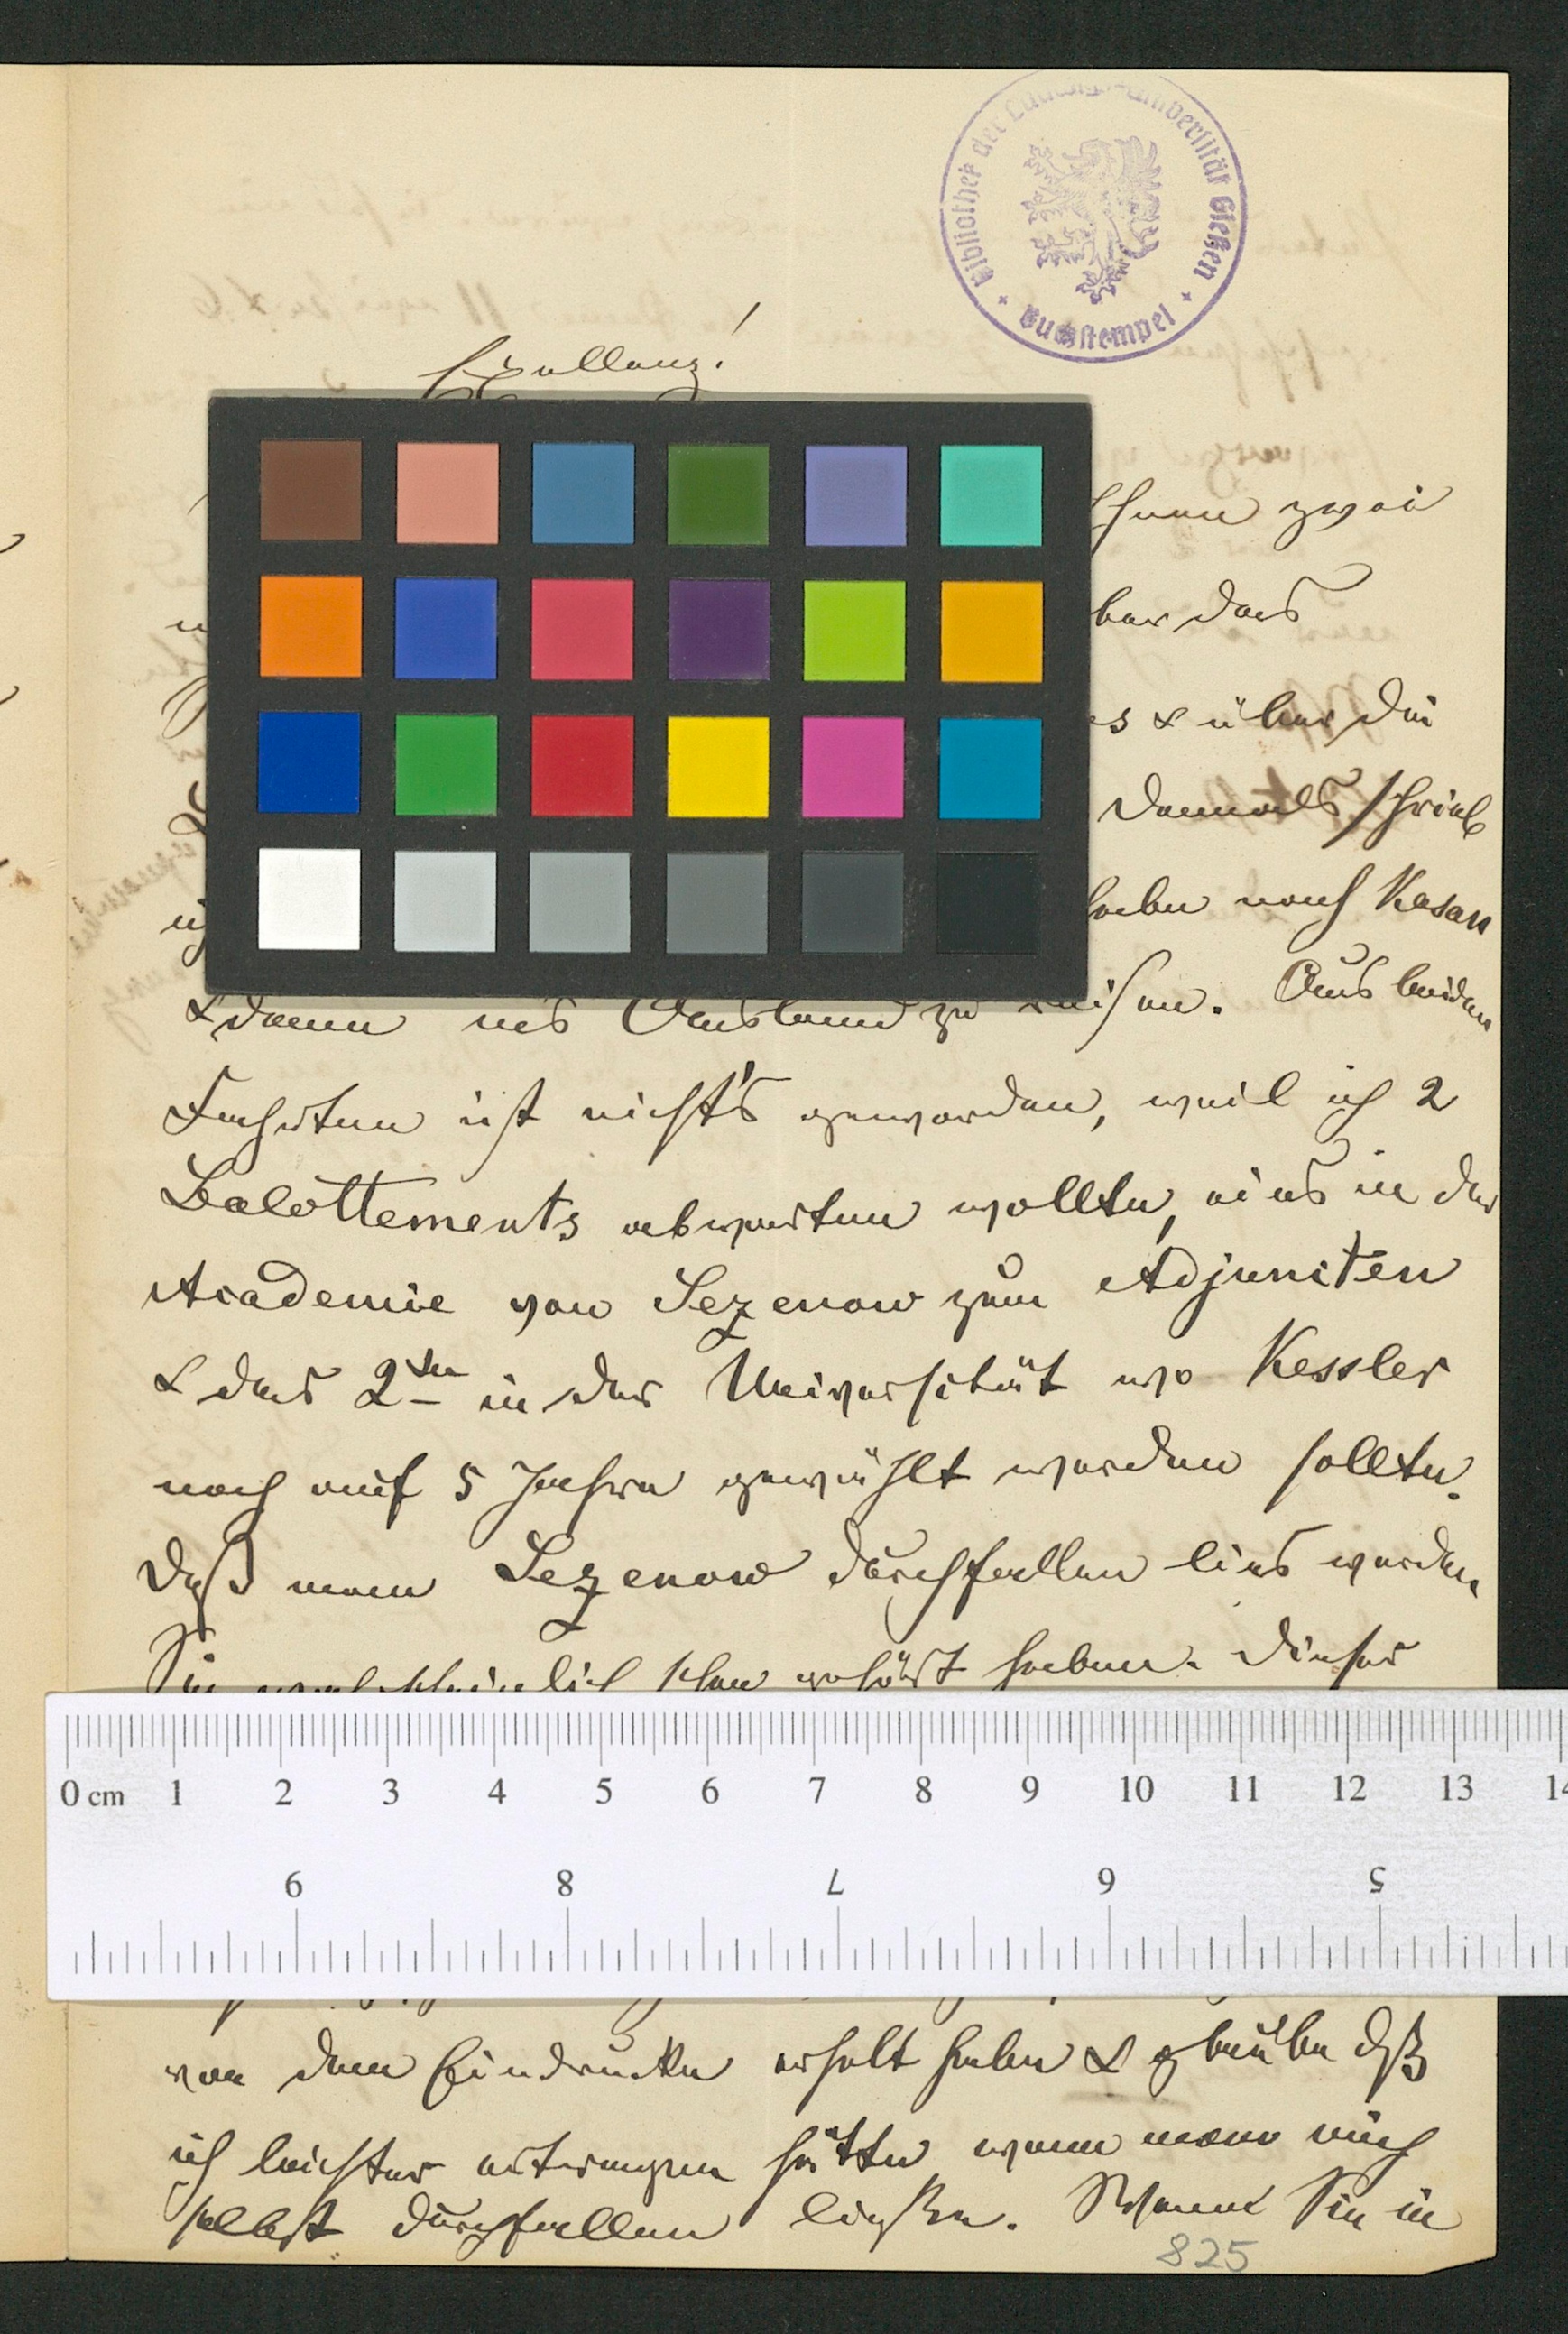 Bibliothek der Ludwigs-Universität Gießen
Buchstempel
Exzellenz!
Ihnen zwei
ber das
es & über die
damals schrieb
haben nach Kasan
& dann ins Ausland zu reisen. Aus beiden
Fahrten ist nicht's geworden, weil ich 2
Balottements abwarten wollte, eins in der
Academie von Sezenow zum Adjuncten
& das 2te in der Universität wo Kessler
noch auf 5 Jahre gewählt werden sollte.
Daß man Sezenow durchfallen lies werden
Sie wahrscheinlich schon gehört haben. Dieser
0 cm 1 2 3 4 5 6 7 8 9 10 11 12 13 14
9 8 7 6 5
von dem Eindrucke erholt habe & glaube dß
ich leichter ertragen hätte wenn man mich
selbst durchfallen ließe. Sie in
825